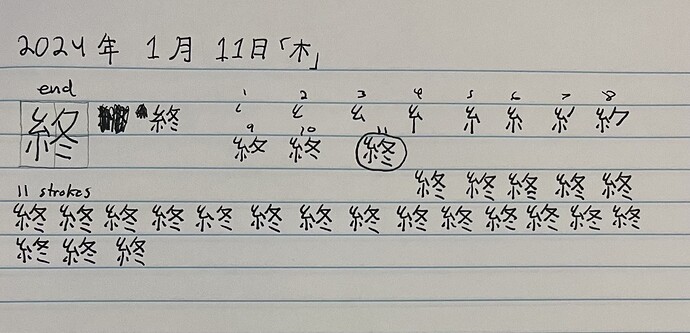 2024年 1月 11日「木」
end 1 2 3 4 5 6 7 8
終 終
9 10 11
終
終 終 終 終 終
11 strokes
終 終 終 終 終 終 終 終 終 終 終 終 終 終
終 終 終